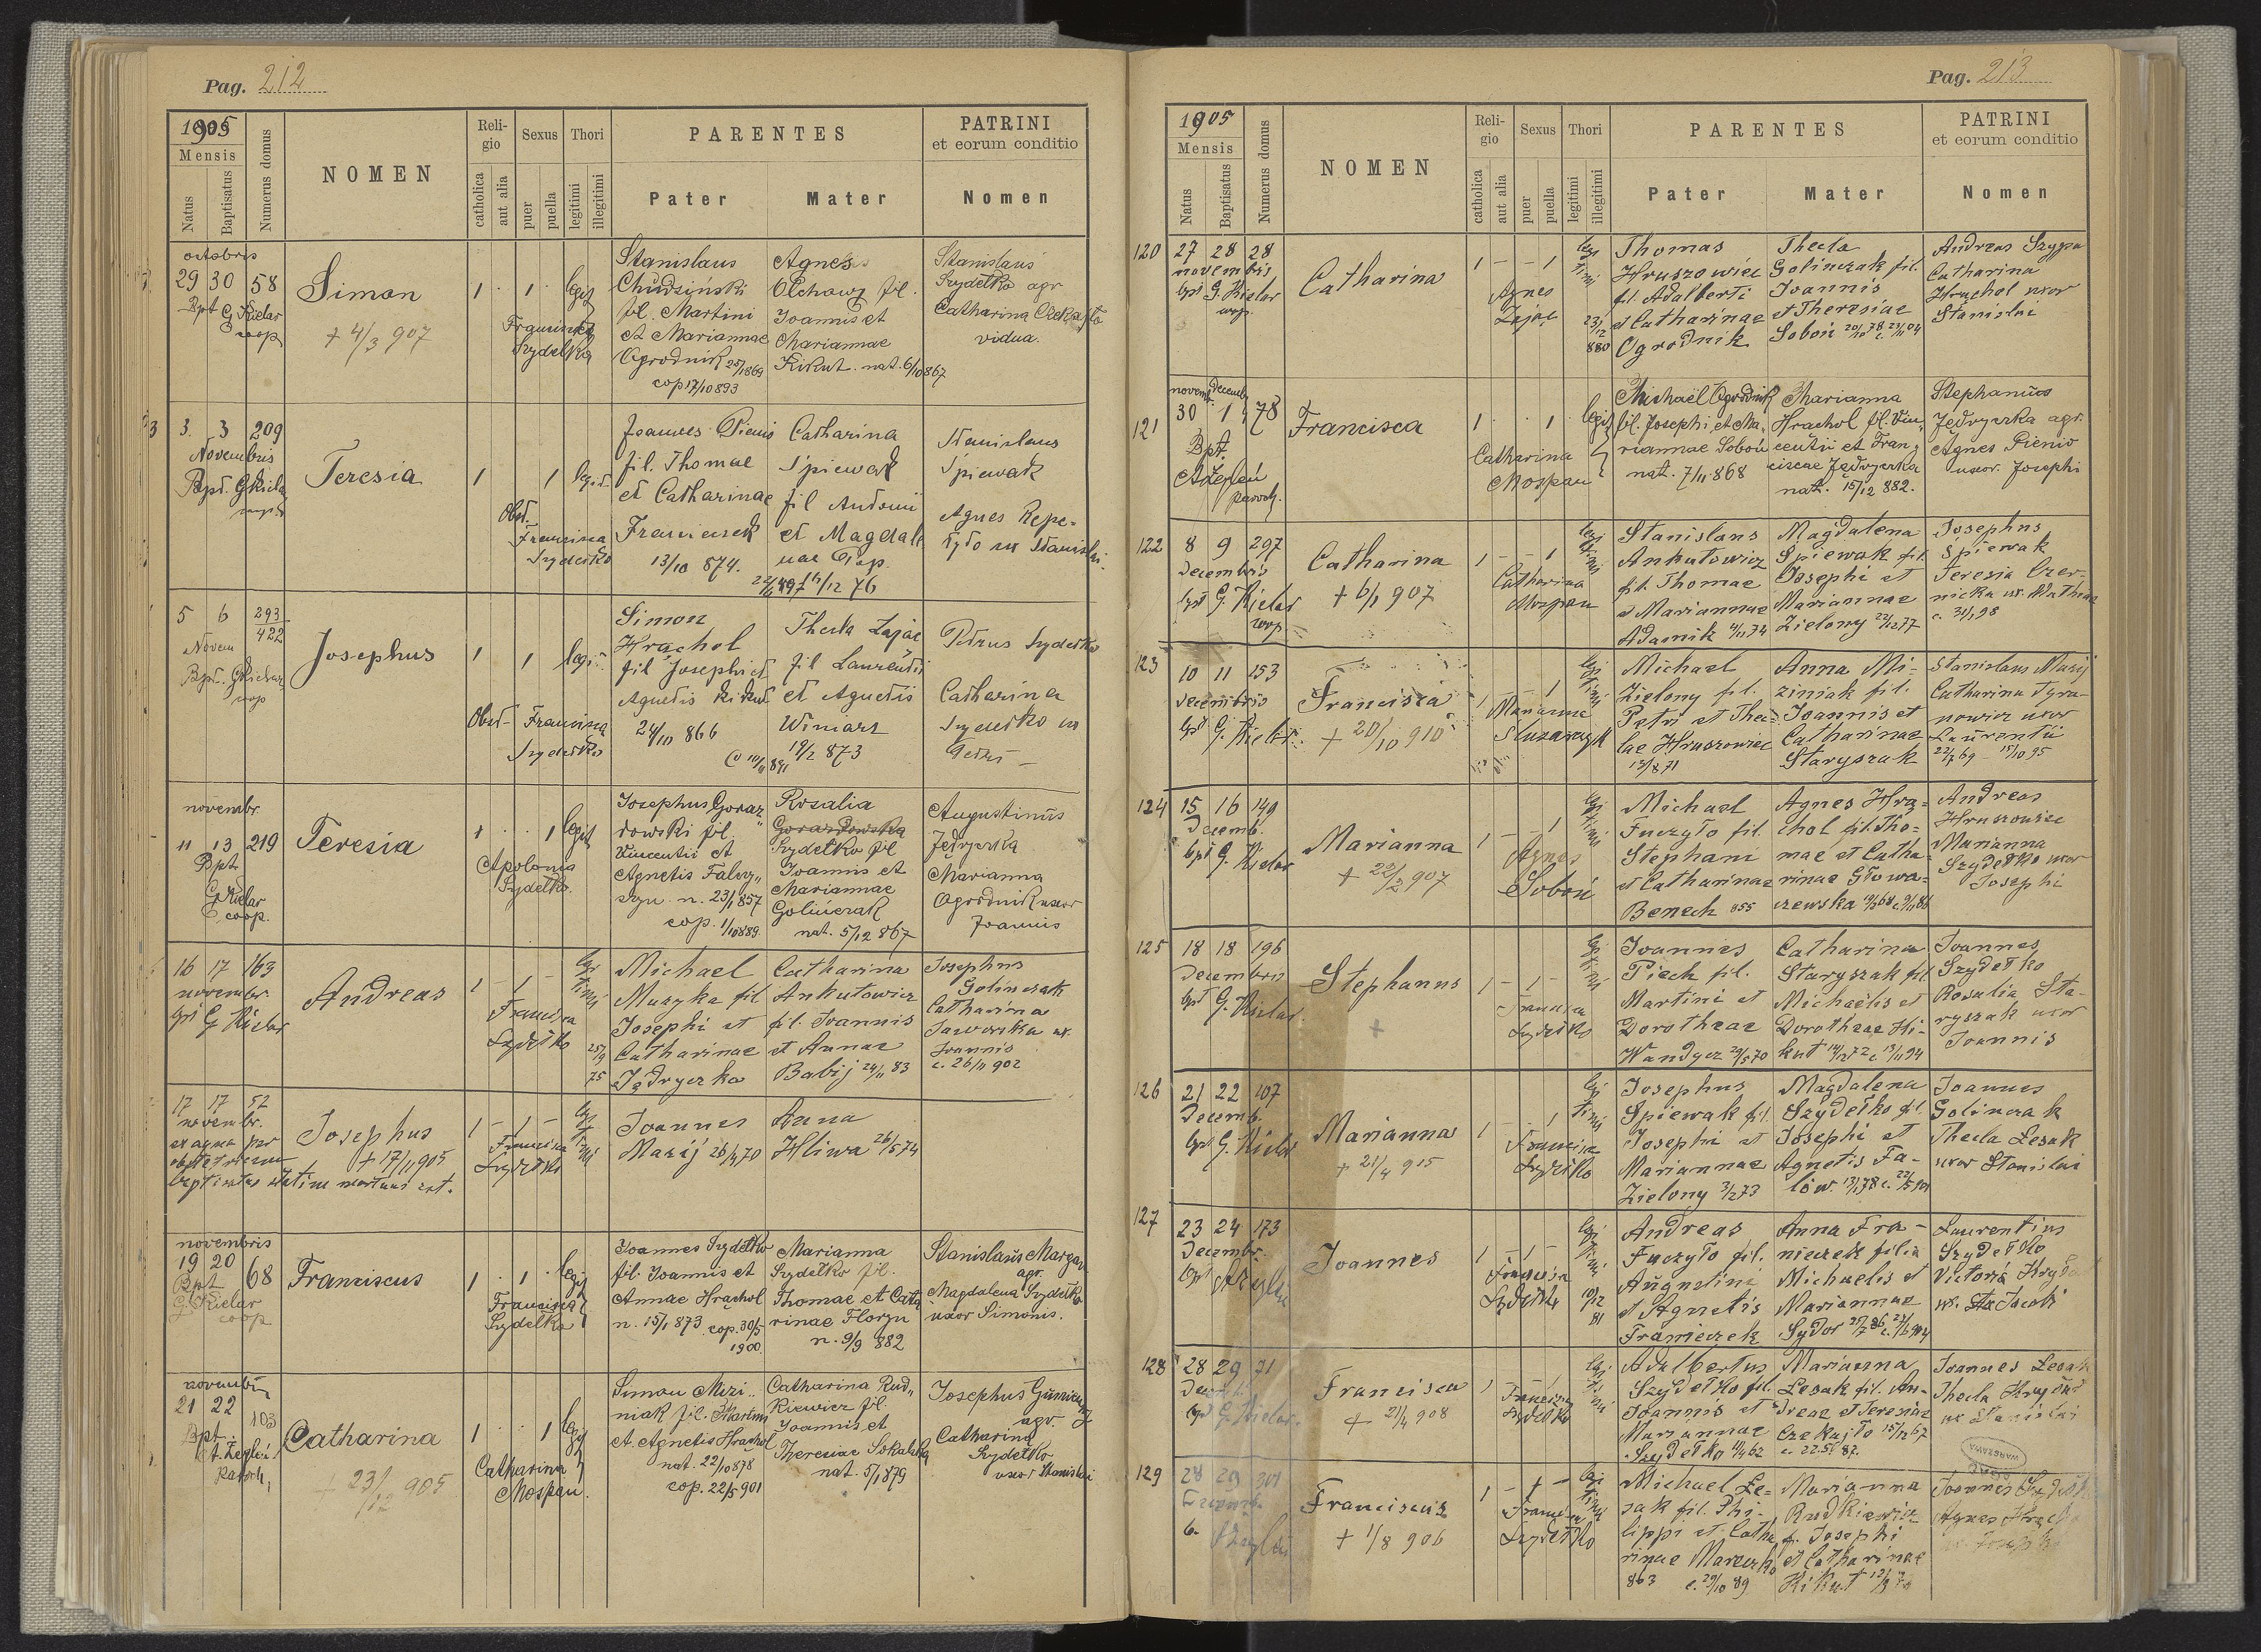 Pag. 212
1905
Mensis
Natus
Baptisatus
Numerus domus
NOMEN
Religio
catholica
aut alia
Sexus
puer
puella
Thori
legitimi
illegitimi
PARENTES
Pater
Mater
PATRINI
et eorum conditio
Nomen
octobris
29 30 58
Bpt G Kielar
coop
Simon
+ 4/3 907
1 1 legit
Francisca
Szydełko
Stanislaus
Chudziński
fil. Martini
et Mariannae
Ogrodnik 25/1869
cop 17/10 893
Agnes
Olchowy fil.
Joannis et
Mariannae
Kikut. nat. 6/10 867
Stanislaus
Szydełko agr
Catharina Czekajło
vidua.
3. 3 209
Novembris
Bpt. G Kielar
Teresia
1 1 legit.
Obst.
Francisca
Szydełko
Joannes Pienio
fil. Thomae
et Catharinae
Franieczek
13/10 874.
Catharina
Śpiewak
fil Antonii
et Magdale
nae
Stanislaus
Śpiewak
Agnes Repe-
ryło ux Stanislai.
5 6 293/422
Novem
Bpt. G Kielar
coop
Josephus
1 1 legit.
Obst- Francisca
Szydełko
Simon
Hrachol
fil Josephi et
Agnetis Kikut
24/10 866
Thecla Zając
fil Laurentii
et Agnetis
Winiarz
19/2 873
Petrus Szydełko
Catharina
Szydełko ux
Petri
novembr.
11 13 219
Bpt
G Kielar
coop.
Teresia
1 1 legit
Apolonia
Szydełko.
Josephus Goraz-
dowski fil.
Vincentii et
Agnetis Falery-
szyn n. 23/1 857
cop. 1/10 889
Rosalia
Gorazdowska
Szydełko fil
Joannis et
Mariannae
Golińczak
nat. 5/12 867
Augustinus
Jędryczka
Marianna
Ogrodnik uxor
Joannis
16 17 163
novembr.
bpt G Kielar
Andreas
1 - 1 - legitimi
Francisca
Szydełko
25/9 75
Michael
Muzyka fil
Josephi et
Catharinae
Jędryczka
Catharina
Ankutowicz
fil. Joannis
et Annae
Babij 24/11 83
Josephus
Golinczak
Catharina
Jaworska ux.
Joannis
c. 26/11 902
17 17 52
novembr.
ex aqua per
obstetricem
baptisatus statim mortuus est.
Josephus
+ 17/11 905
1 - 1 - legitimi
Francisca
Szydełko
Joannes
Mazij 26/1 70
Anna
Hliwa 26/5 74
novembris
19 20 68
Bpt
G Kielar
coop
Franciscus
1 1 legit
Francisca
Szydełko
Joannes Szydełko
fil. Joannis et
Annae Hrachol
n. 15/1 873 cop. 30/5
1900.
Marianna
Szydełko fil.
Thomae et Catha
rinae Floryn
n. 9/9 882
Stanislaus Margan
agr.
Magdalena Szydełko
uxor Simonis.
novembr
21 22 103
Bpt.
A. Żegleń
paroch,
Catharina
+ 23/12 905
1 1 legit
Catharina
Mospan.
Simon Mizi-
niak fil. Martini
et Agnetis Hrachol
nat. 22/10 878
cop. 22/5 901
Catharina Rud-
kiewicz fil.
Joannis et
Theresiae Sokalska
nat. 5/1 879
Josephus Gumieny
agr.
Catharina
Szydełko
uxor Stanislai
Pag. 213
1905
Mensis
Natus
Baptisatus
Numerus domus
NOMEN
Religio
catholica
aut alia
Sexus
puer
puella
Thori
legitimi
illegitimi
PARENTES
Pater
Mater
PATRINI
et eorum conditio
Nomen
120 27 28 28
novembris
bpt G. Kielar
coop.
Catharina
1 - - 1 legitimi
Agnes
Zając
23/12 880
Thomas
Hruszowiec
fil. Adalberti
et Catharinae
Ogrodnik
Thecla
Golinczak fil.
Joannis
et Theresiae
Soboń 20/10 78 c. 23/11 04
Andreas Szyga
Catharina
Hrachol uxor
Stanislai
121
novemb. decembr
30 1 78
Bpt.
A Żegleń
paroch.
Francisca
1 1 legit
Catharina
Mospan
Michaël Ogrodnik
fil. Josephi et Ma-
riannae Soboń
nat. 7/11 868
Marianna
Hrachol fil. Vin-
centii et Fran-
ciscae Jędryczka
nat. 15/12 882.
Stephanus
Jędryczka agr.
Agnes Pienio
uxor. Josephi
122 8 9 297
decembris
bpt G. Kielar
coop
Catharina
+ 6/1 907
1 - - 1 legitimi
Catharina
Mospan
Stanislaus
Ankutowicz
fil. Thomae
et Mariannae
Adamik 4/11 74
Magdalena
Śpiewak fil.
Josephi et
Mariannae
Zielony 22/12 77
Josephus
Śpiewak
Teresia Czer-
nicka ux. Mathiae
c. 31/1 98
123 10 11 153
decembris
bpt G. Kielar
Francisca
+ 20/10 910
1 1 legitimi
Marianna
Slusarczyk
Michael
Zielony fil.
Petri et Thec-
lae Hruszowiec
15/8 71
Anna Mi-
ziniak fil.
Joannis et
Catharinae
Staryszak
Stanislaus Mazij
Catharina Tyra-
nowicz uxor
Laurentii
22/7 69 15/10 95
124 15 16 149
Decemb.
bpt G. Kielar
Marianna
+ 22/2 907
1 - - 1 legitimi
Agnes
Soboń
Michael
Fuczyło fil.
Stephani
et Catharinae
Benech 855
Agnes Hra-
chol fil. Tho-
mae et Catha-
rinae Głowa-
czewska
Andreas
Hruszowiec
Marianna
Szydełko uxor
Josephi
125 18 18 196
Decembris
bpt G. Kielar.
Stephanus
+
1 - 1 - legitimi
Francisca
Szydełko
Joannes
Piech fil.
Martini et
Dorotheae
Wandycz 29/5 70
Catharina
Staryszak fil
Michaëlis et
Dorotheae Ki-
kut 14/12 72 c. 13/11 94
Joannes
Szydełko
Rosalia Sta-
ryszak uxor
Joannis
126 21 22 107
Decemb.
bpt G. Kielar
Marianna
+ 21/4 915
1 - 1 legitimi
Francisca
Szydełko
Josephus
Śpiewak fil.
Josephi et
Mariannae
Zielony 3/2 73
Magdalena
Szydełko fil.
Josephi et
Agnetis Fa-
lów. 13/1 78 c. 22/5 901
Joannes
Golinczak
Thecla Lesak
uxor Stanislai
127 23 24 173
Decembr.
bpt A Żegleń
Joannes
1 - 1 - legitimi
Francisca
Szydełko
10/12 81
Andreas
Fuczyło fil.
Augustini
et Agnetis
Franieczek
Anna Fra-
nieczek filia
Michaelis et
Mariannae
Sydor
Laurentius
Szydełko
Victoria
ux. Jacobi
128 28 29 71
Decemb.
bpt G. Kielar.
Francisca
+ 21/4 908
1 legitimi
Francisca
Szydełko
Adalbertus
Szydełko fil.
Joannis et
Mariannae
Szydełko 4/4 62
Marianna
Lesak fil. An-
dreae et Teresiae
Czekajło 15/12 67
c. 22.5. 87.
Joannes Lesak
Thecla
ux Stanislai
129 28 29 301
Decemb.
Żegleń
Franciscus
+ 1/8 906
1 - 1 - legitimi
Francisca
Szydełko
Michael Le-
sak fil. Phi-
lippi et Catha
rinae Mareczko
863 c. 29/10 89
Marianna
Rudkiewicz
f. Josephi
et Catharinae
Kikut
Joannes Szydełko
Agnes
ux Josephi
WARSZAWA